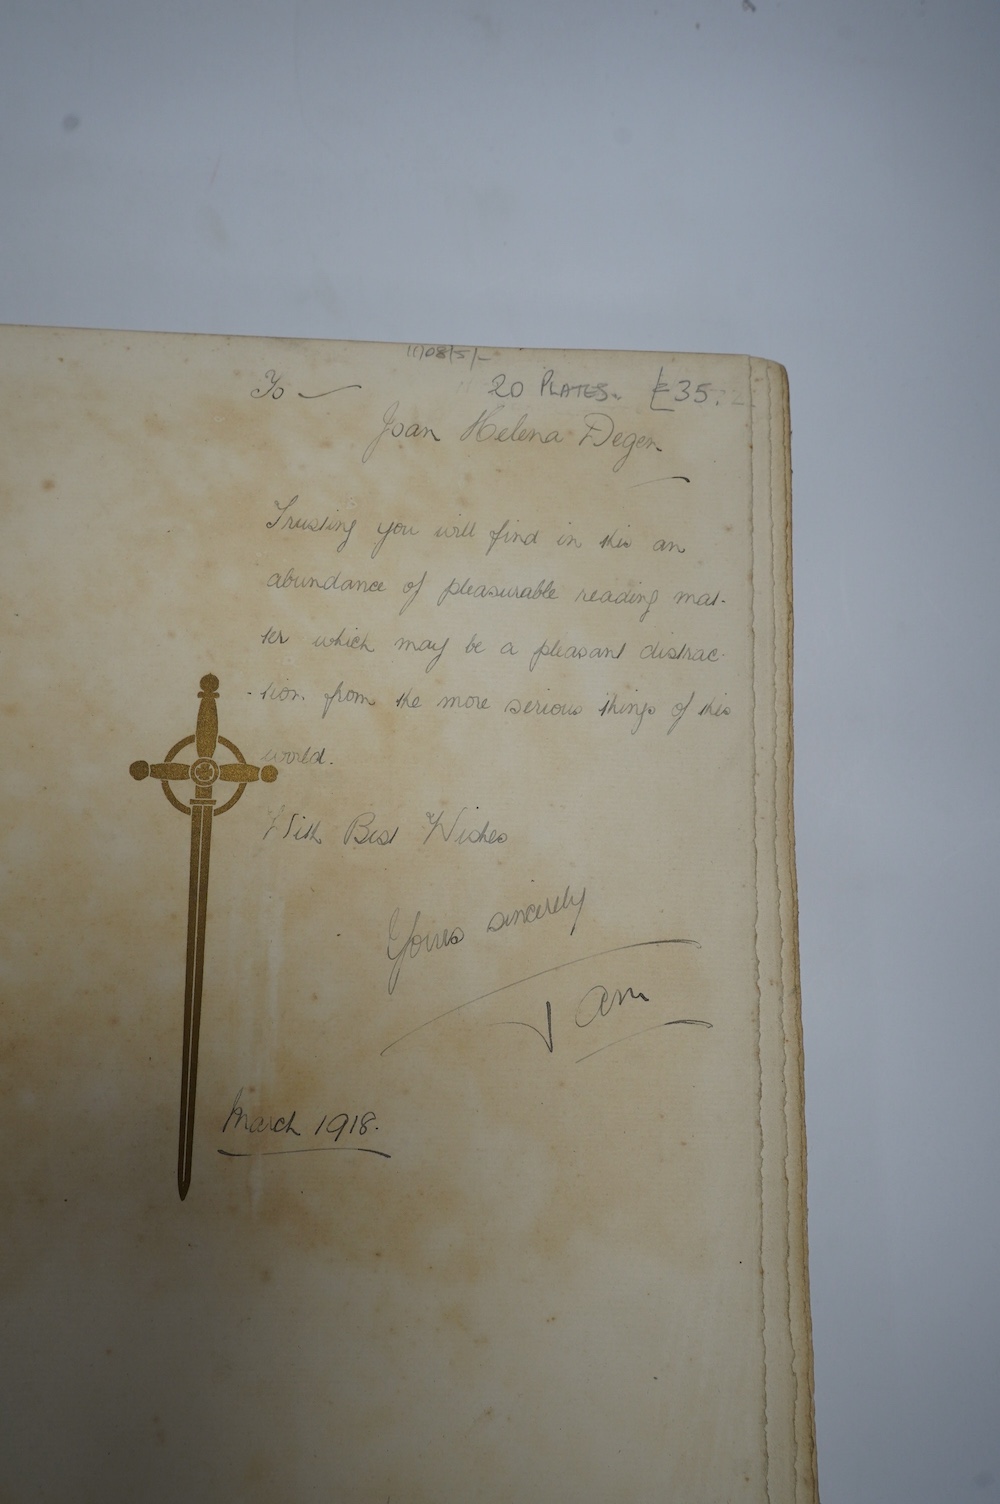 To
20 PLATES. £35.
Joan Helena Degen
Trusting you will find in this an
abundance of pleasurable reading mat-
ter which may be a pleasant distrac-
-tion from the more serious things of this
world.
With Best Wishes
Yours sincerely
March 1918.